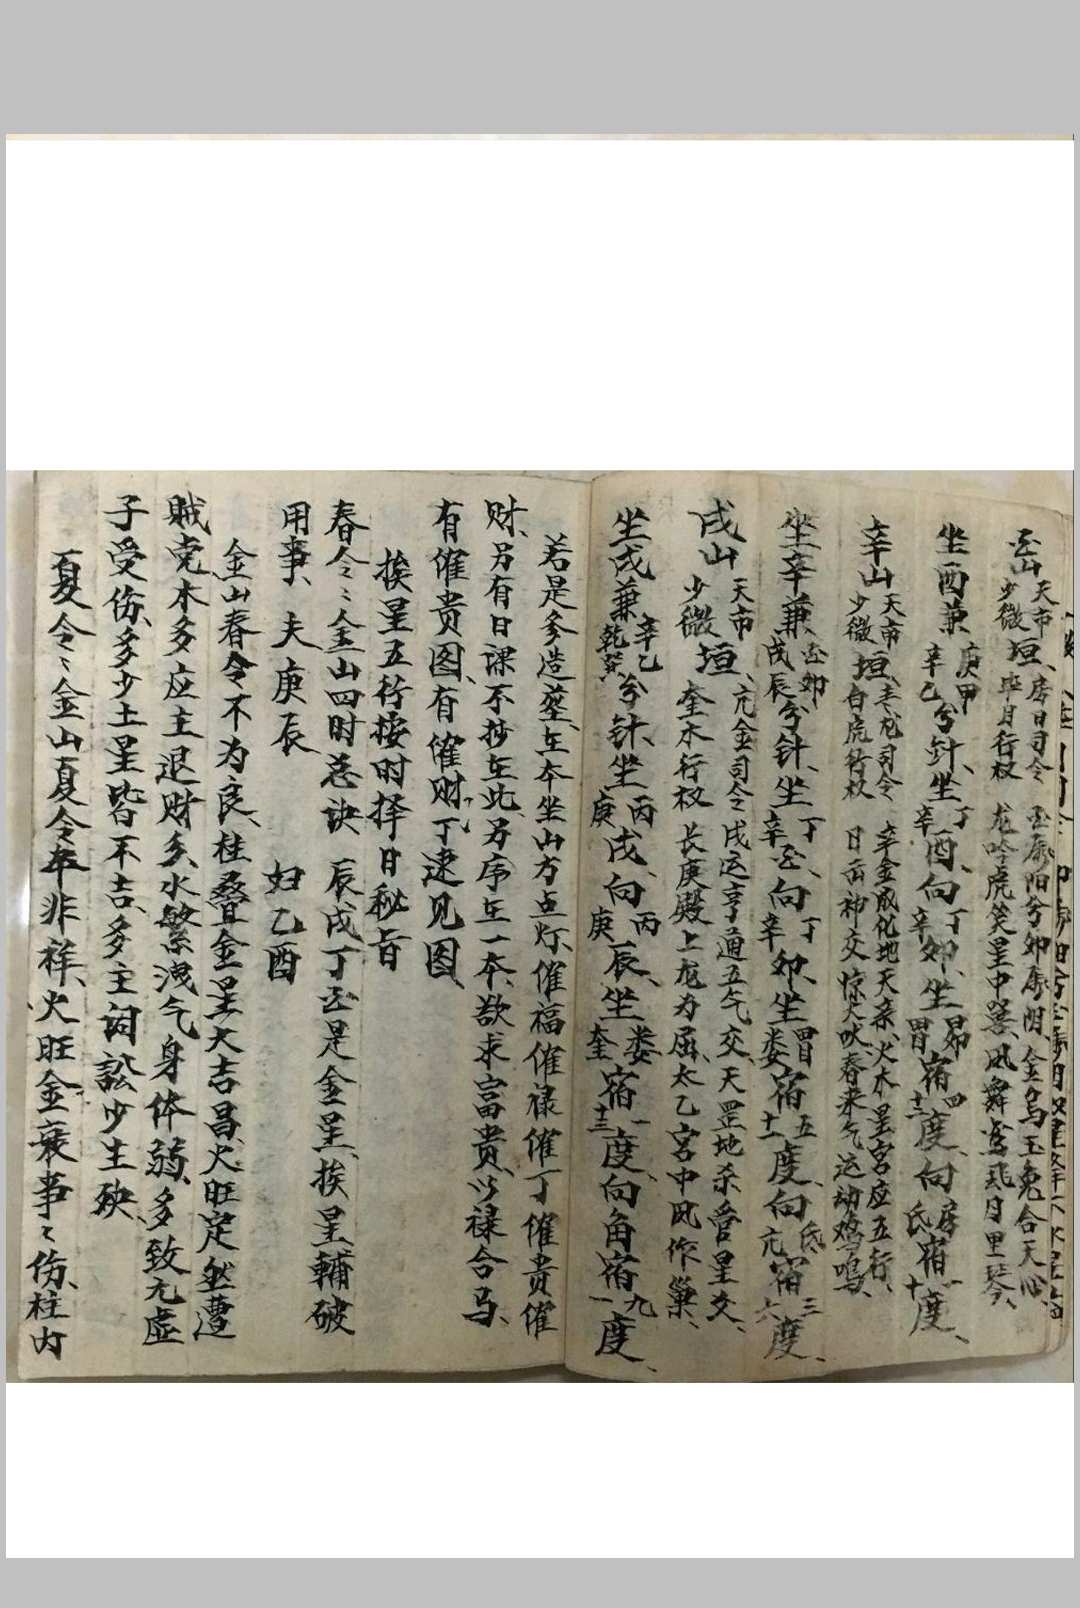 酉山天市少微垣、房日司令毕月行权 酉属阳兮卯属阴、金乌玉兔合天心、龙吟虎笑星中器、凤舞鸾飞月里琴、
坐酉兼庚甲辛乙兮针、坐丁辛酉、向丁辛卯、坐昴胃宿四十三度、向房氐宿一十度、
辛山天市少微垣、青龙司令白虎行权 辛金成化地天亲、火木星宫应五行、日岳神交惊犬吠春来气运动鸡鸣、
坐辛兼酉卯戌辰兮针、坐丁辛酉向丁辛卯、坐胃娄宿五十一度、向氐亢宿三六度、
戌山天市少微垣、亢金司令奎木行权 戌运亨通五气交、天罡地杀营星交、长庚殿上龙为屈、太乙宫中凤作巢、
坐戌兼辛乙乾巽兮针、坐丙庚戌向丙庚辰、坐娄奎宿一十三度、向角宿九一度、
若是多造葬、在本坐山方点灯、催福催禄催丁催贵催
财、另有日课不抄在此、另序在一本、欲求富贵、以禄合马、
有催贵图、有催财丁速见图、
挨星五行按时择日秘旨
春令：金山四时总诀 辰戌丁酉是金星、挨星辅破
用事、夫庚辰 妇乙酉
金山春令不为良、柱叠金星大吉昌、火旺定然遭
贼克木多应主退财多、水繁洩气身体弱、多致元虚
子受伤、多少土星皆不吉、多主词讼少主殃、
夏令：金山夏令年非祥、火旺金衰事：伤、柱内